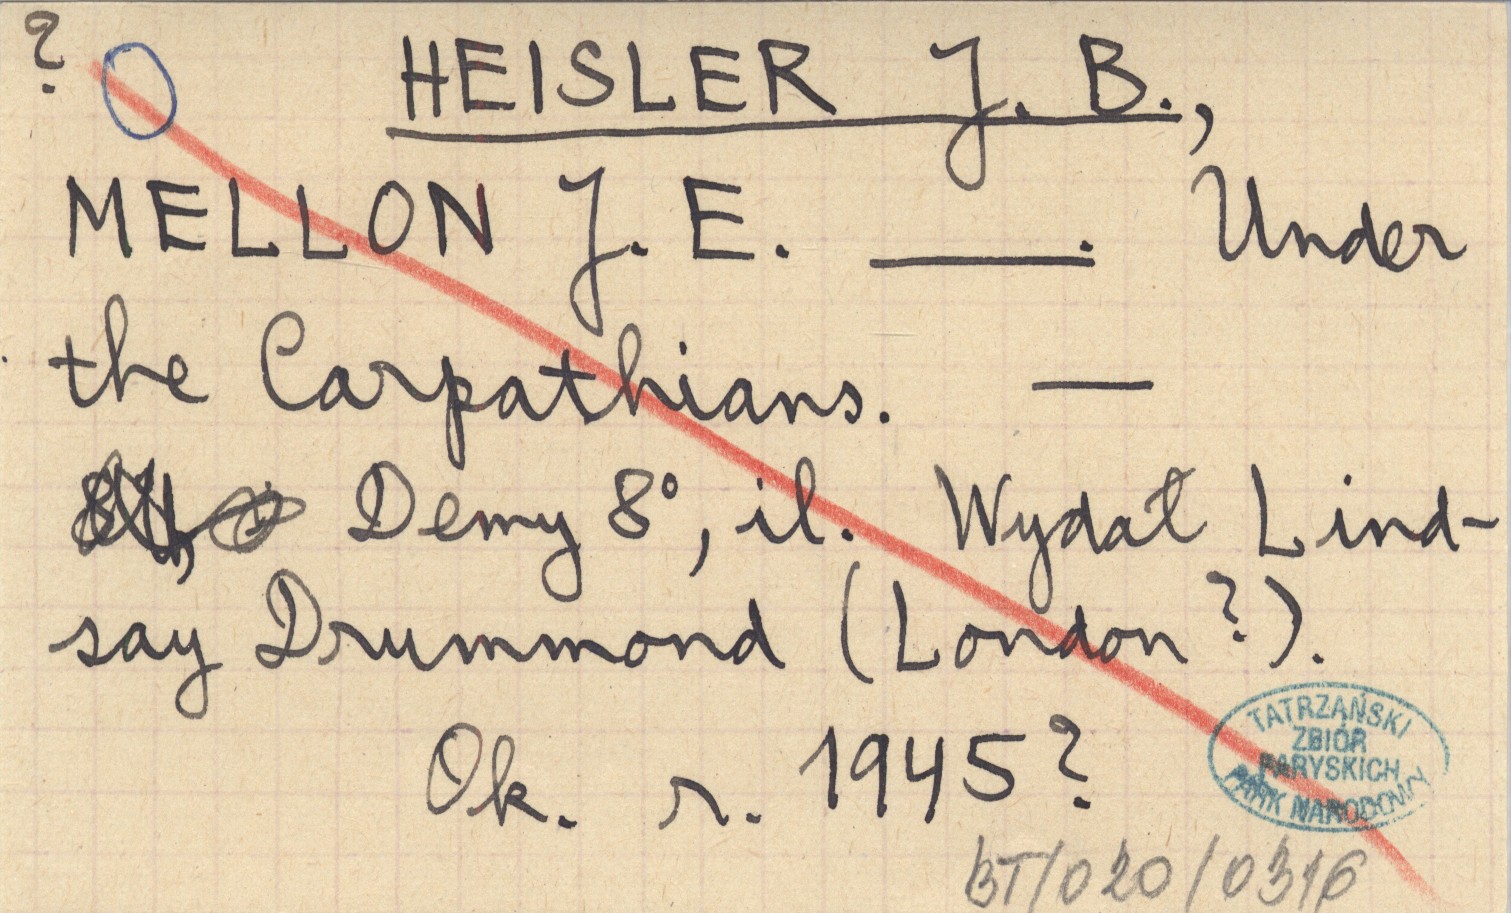 ?
HEISLER J. B.,
MELLON J. E. ——. Under
the Carpathians. —
Demy 8°, il. Wydał Lind-
say Drummond (London?).
Ok. r. 1945?
TATRZAŃSKI
ZBIÓR
PARYSKICH
PARK NARODOWY
BT/020/0316